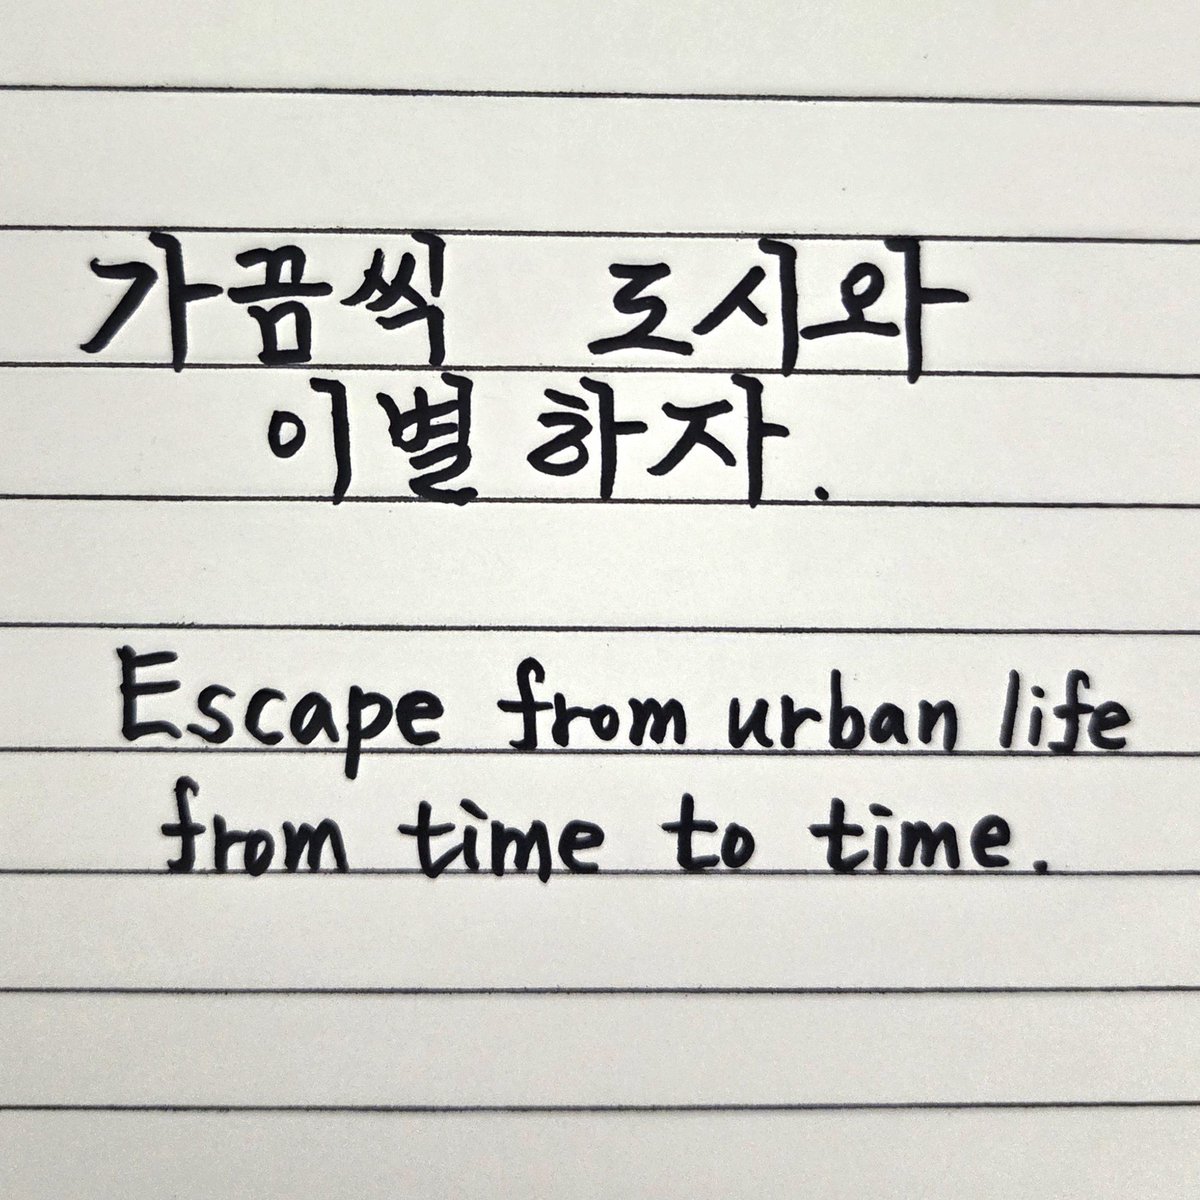 가끔씩 도시와
이별하자.
Escape from urban life
from time to time.